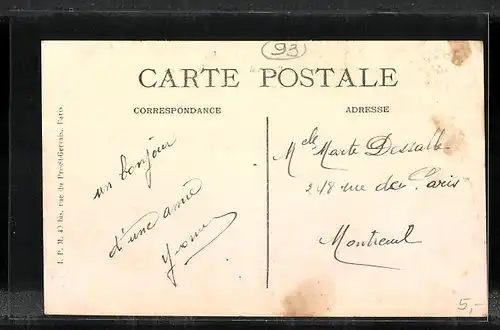 93
CARTE POSTALE
CORRESPONDANCE
ADRESSE
un bonjour
d'une amie
Yvonne
Melle Marte Dessalle
218 rue de Paris
Montreuil
I. P. M. 49 bis, rue du Pré-St-Gervais, Paris
5,-